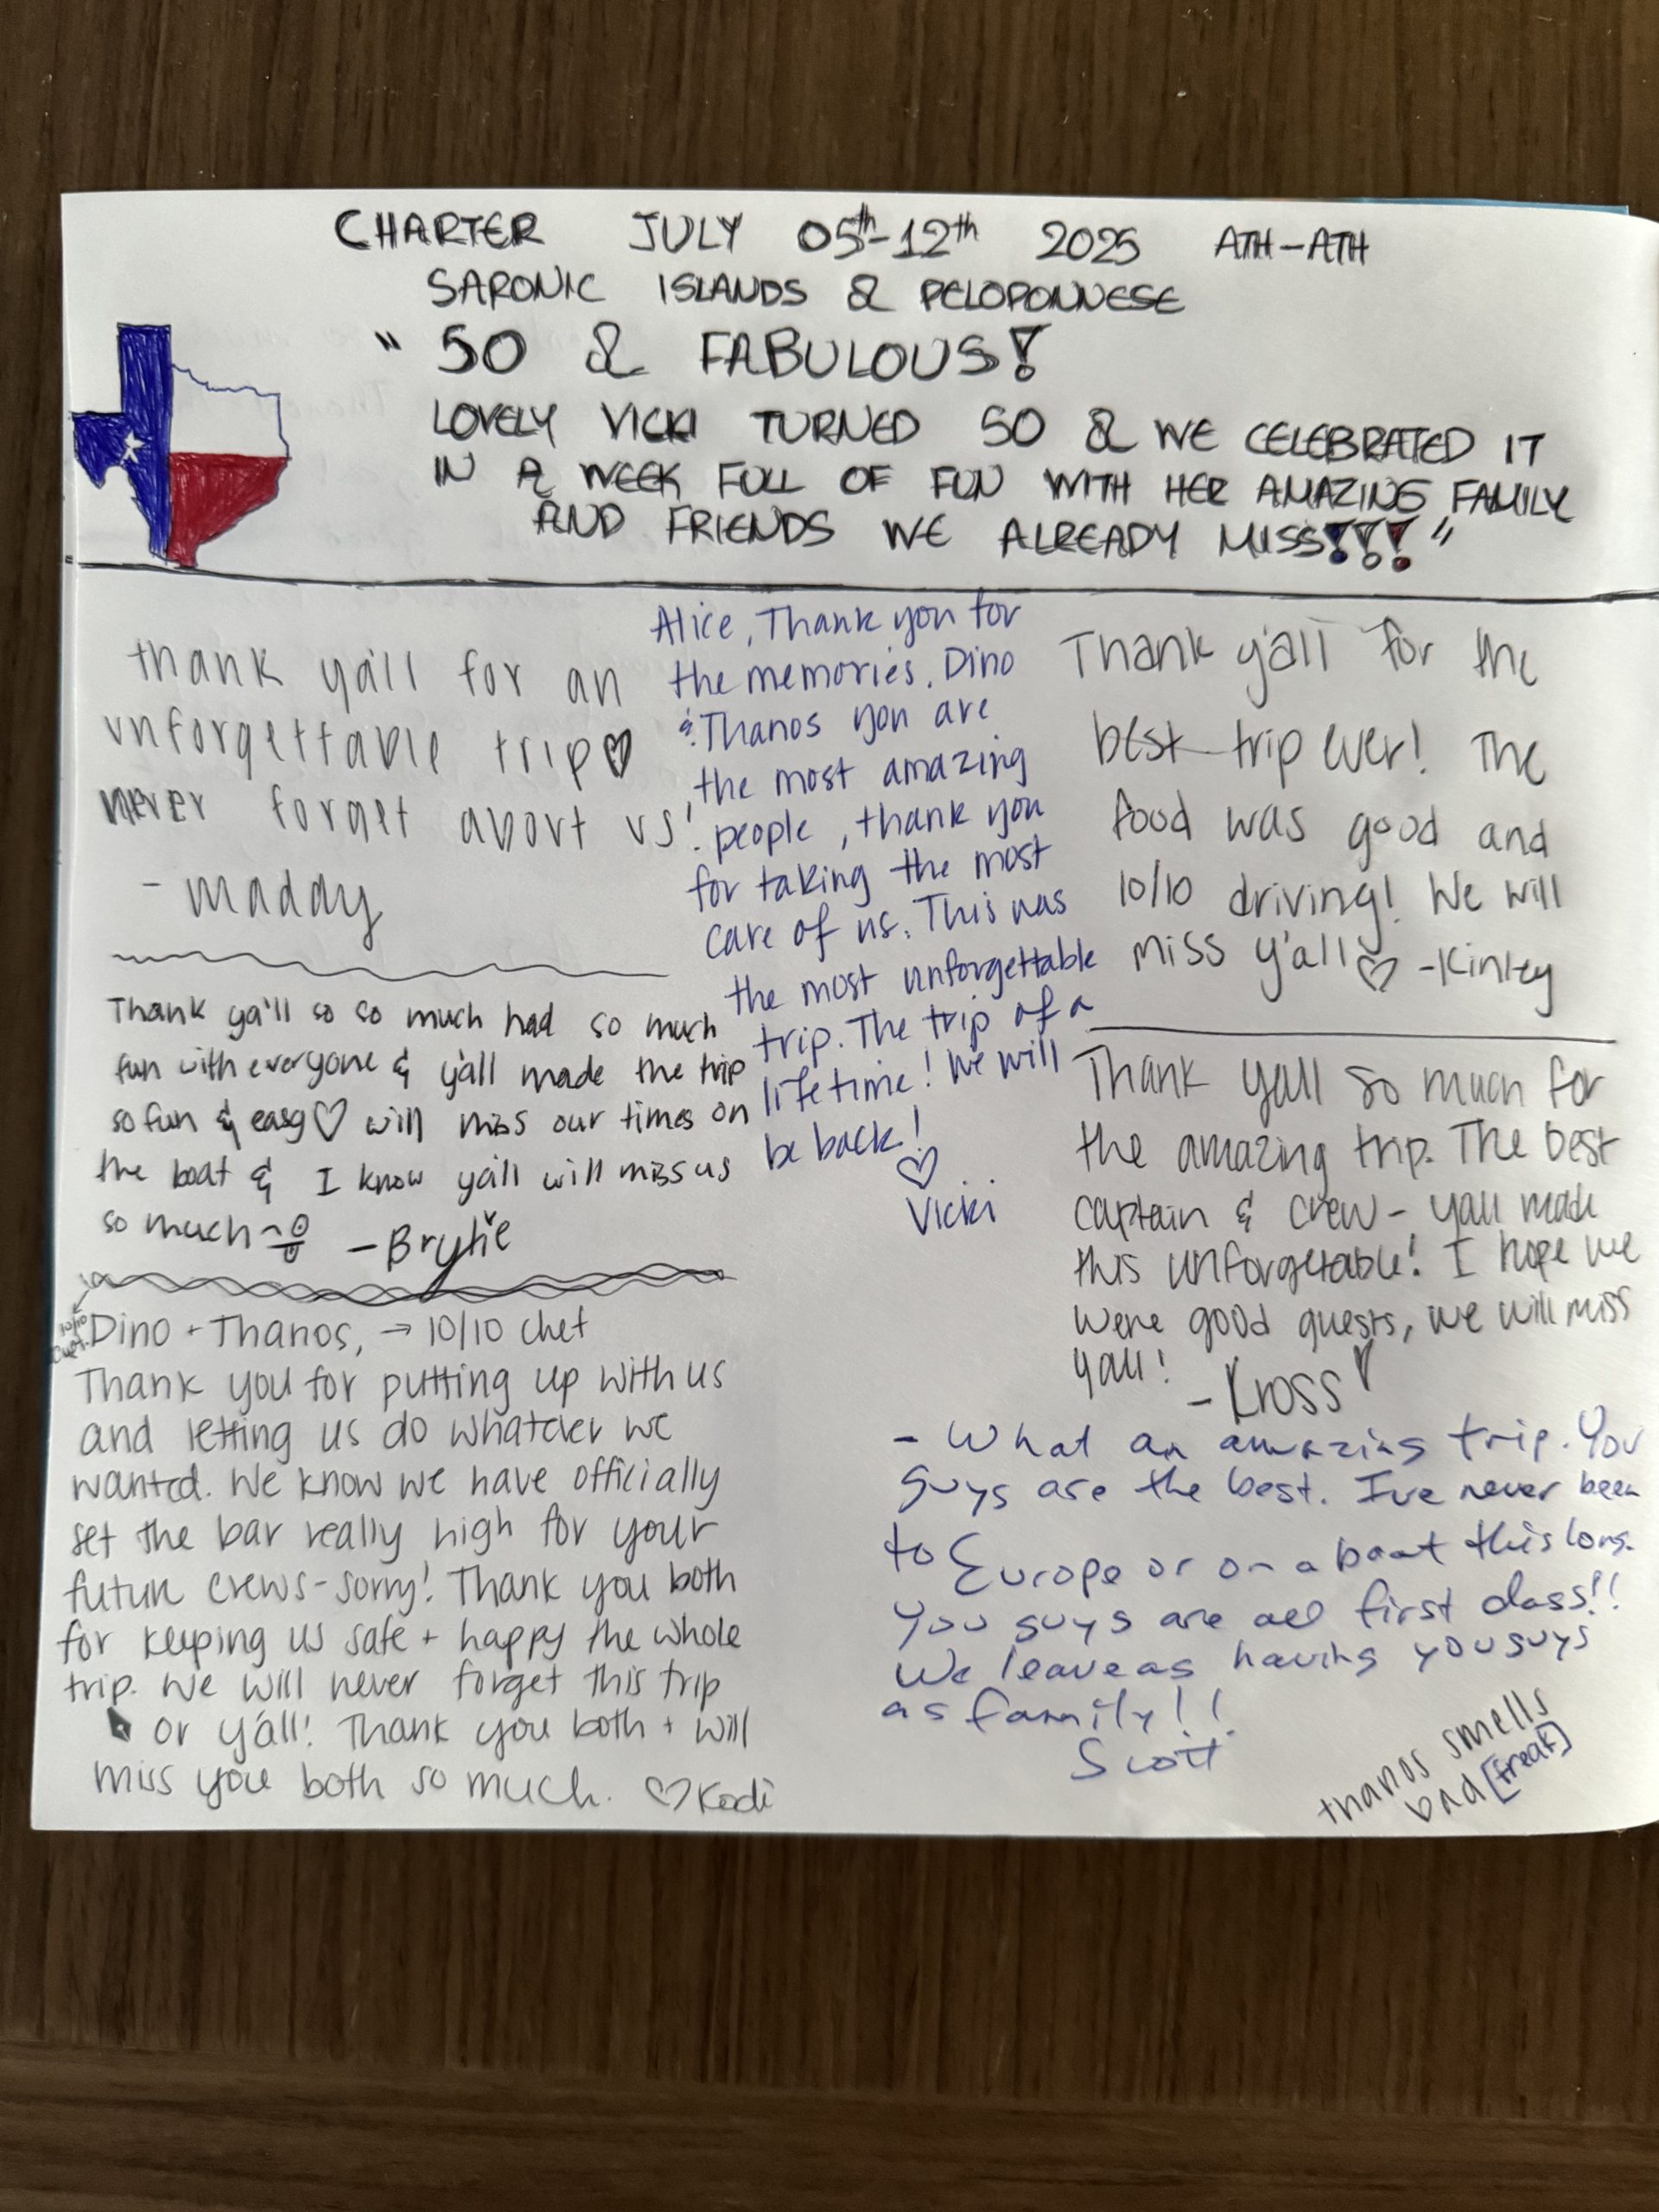 CHARTER JULY 05th-12th 2025 ATH-ATH
SARONIC ISLANDS & PELOPONNESE
" 50 & FABULOUS!
LOVELY VICKI TURNED 50 & WE CELEBRATED IT
IN A WEEK FULL OF FUN WITH HER AMAZING FAMILY
AND FRIENDS WE ALREADY MISS!!! "
thank ya'll for an
unforgettable trip♡
never forget about us!
- maddy
Thank ya'll so so much had so much
fun with everyone & y'all made the trip
so fun & easy♡ will miss our times on
the boat & I know ya'll will miss us
so much
- Brylie
10/10
Capt.
Dino + Thanos, → 10/10 chef
Thank you for putting up with us
and letting us do whatever we
wanted. We know we have officially
set the bar really high for your
future crews-sorry! Thank you both
for keeping us safe + happy the whole
trip. We will never forget this trip
or y'all! Thank you both + will
miss you both so much. ♡Kodi
Alice, Thank you for
the memories. Dino
& Thanos you are
the most amazing
people, thank you
for taking the most
care of us. This was
the most unforgettable
trip. The trip of a
lifetime! We will
be back!
♡
Vicki
Thank y'all for the
best trip ever! The
food was good and
10/10 driving! We will
miss y'all♡ -Kinley
Thank yall so much for
the amazing trip. The best
captain & crew- yall made
this unforgetable! I hope we
were good guests, we will miss
yall!
- Kross♡
- What an amazing trip. You
guys are the best. I've never been
to Europe or on a boat this long.
You guys are all first class!!
We leave as having you guys
as family!!
Scott
thanos smells
bad [freak]